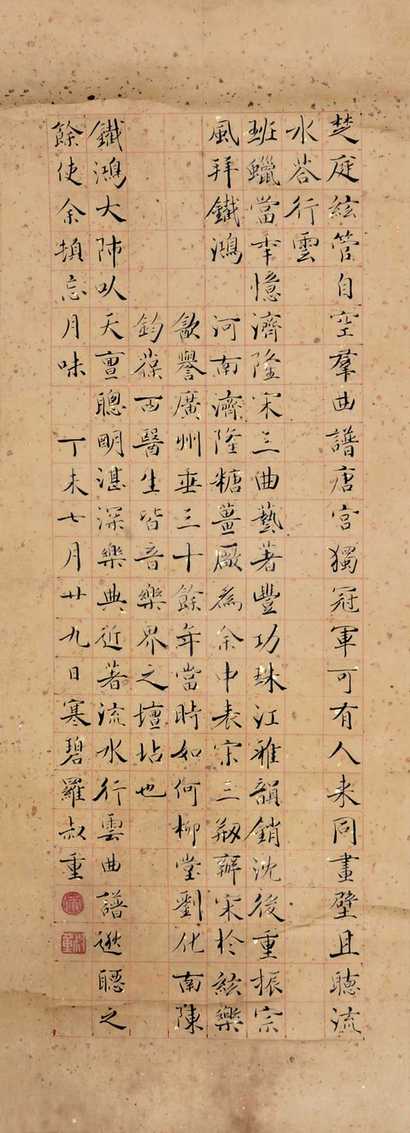 楚庭絃管自空羣曲譜唐宮獨冠軍可有人來同畫壁且聽流
水荅行雲
班蠟當年憶濟隆宋三曲藝著豐功珠江雅韻銷沈後重振宗
風拜鐵鴻
河南濟隆糖薑廠為余中表宗三剏辦宋於絃樂
歙譽廣州垂三十餘年當時如何柳堂劉化南陳
鈞葆西醫生皆音樂界之壇坫也
鐵鴻大師以天亶聰明湛深樂典近著流水行雲曲譜逖聽之
餘使余頓忘月味 丁未七月廿九日寒碧羅叔重